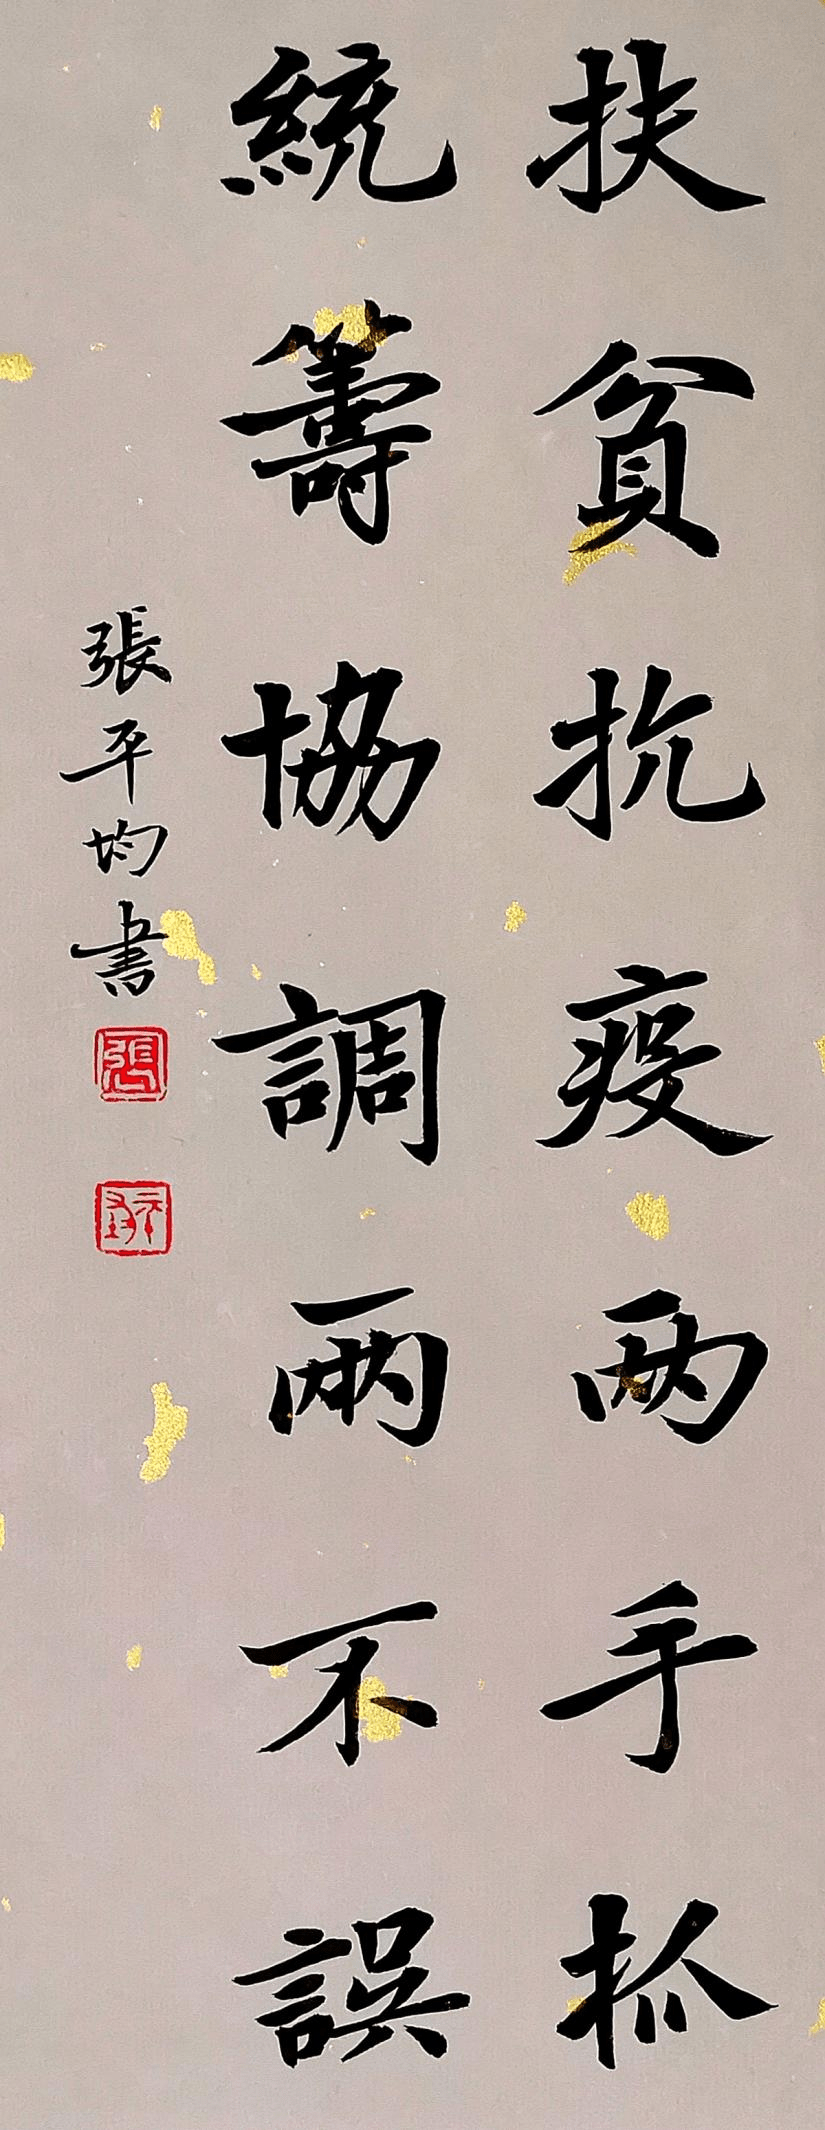 扶貧抗疫兩手抓
統籌協調兩不誤
張平均書
張